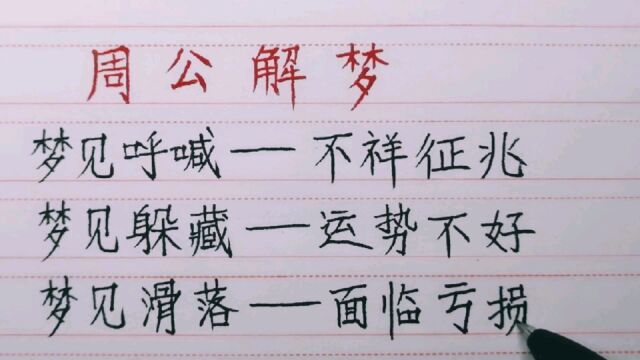 周公解梦
梦见呼喊——不祥征兆
梦见躲藏——运势不好
梦见滑落——面临亏损